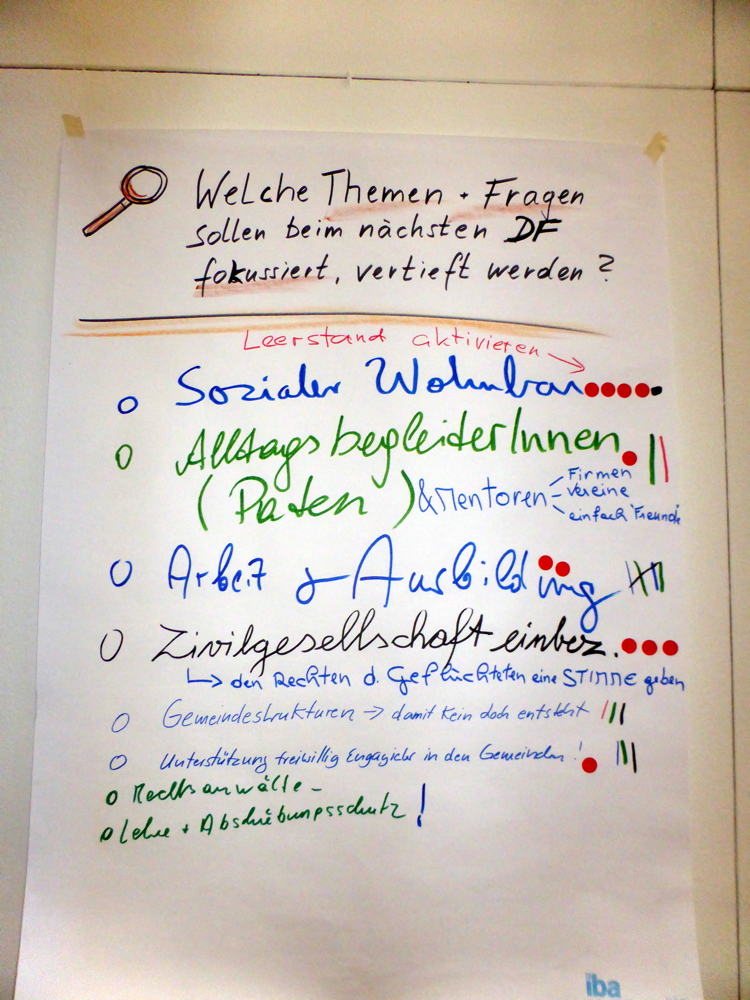 Welche Themen + Fragen
sollen beim nächsten DF
fokussiert, vertieft werden?
Leerstand aktivieren →
o Sozialer Wohnbau
o AlltagsbegleiterInnen
(Paten) & Mentoren
Firmen
Vereine
einfach "Freunde"
o Arbeit & Ausbildung
o Zivilgesellschaft einbez.
↳ den Rechten d. Geflüchteten eine STIMME geben
o Gemeindestrukturen → damit kein doch entsteht
o Unterstützung freiwillig Engagierte in den Gemeinden!
o Rechtsanwälte -
o Lehre + Abschiebungsschutz!
iba